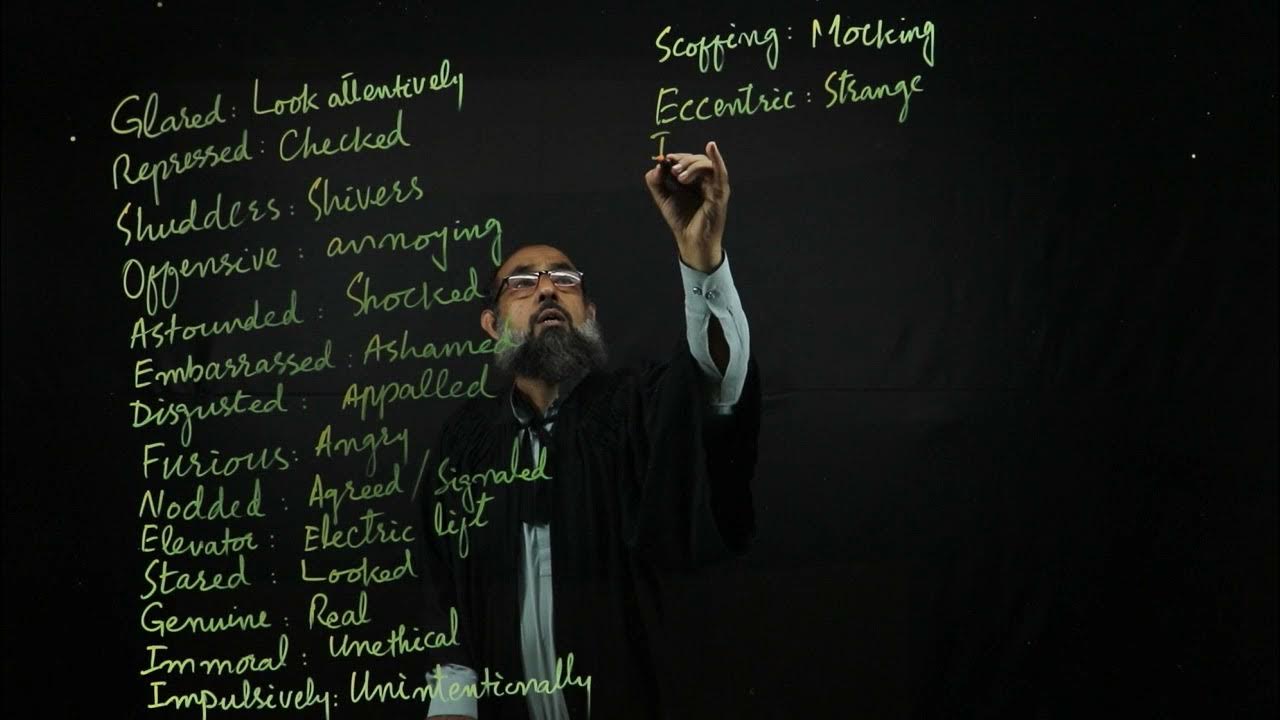 Glared: Look attentively
Repressed: Checked
Shudders: Shivers
Offensive: annoying
Astounded: Shocked
Embarrassed: Ashamed
Disgusted: Appalled
Furious: Angry
Nodded: Agreed/Signaled
Elevator: Electric lift
Stared: Looked
Genuine: Real
Immoral: Unethical
Impulsively: Unintentionally
Scoffing: Mocking
Eccentric: Strange
I